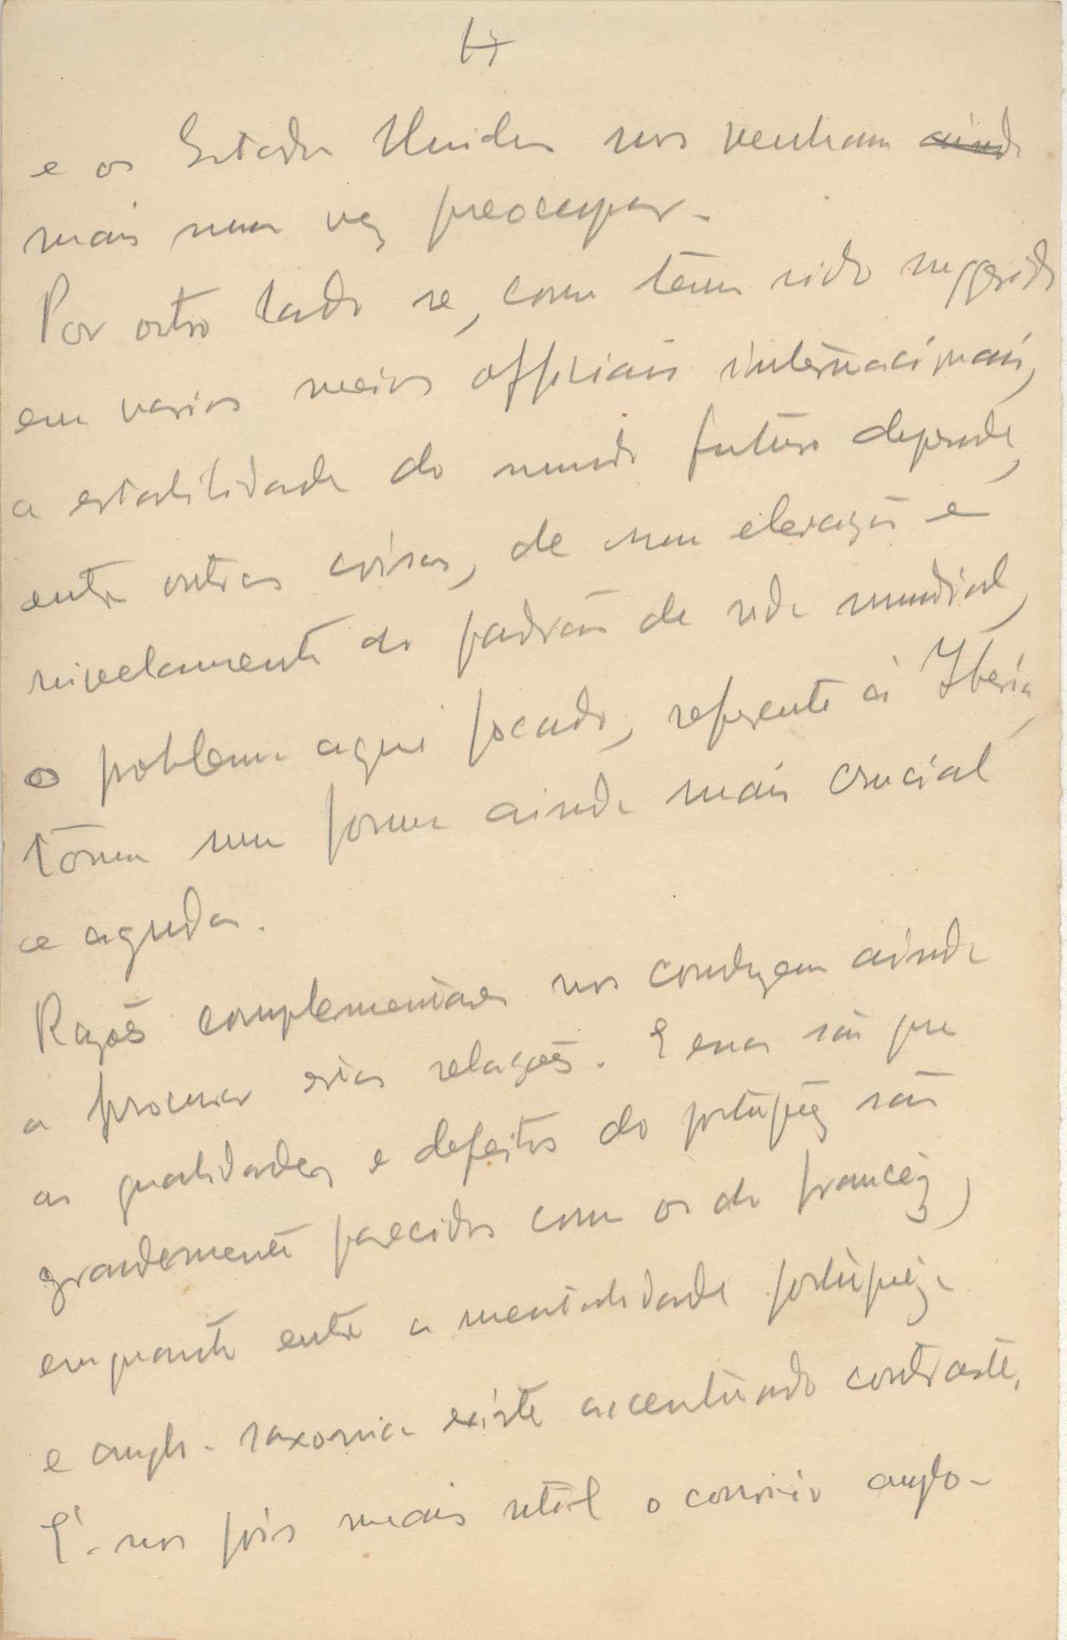 17
e os Estados Unidos nos venham ainda
mais uma vez preocupar.
Por outro lado se, como tem sido suggerido
em varios meios officiais internacionais,
a estabilidade do mundo futuro depende,
entre outras coisas, de uma elevação e
nivelamento do padrão de vida mundial,
o problema aqui focado, referente á Iberia,
tôma uma forma ainda mais crucial
e aguda.
Razões complementares nos conduzem ainda
a procurar estas relações. E essas são que
as qualidades e defeitos do portuguêz são
grandemente parecidos com os do francêz,
emquanto entre a mentalidade portuguêza
e anglo-saxonica existe accentuado contraste.
É-nos pois mais util o convivio anglo-